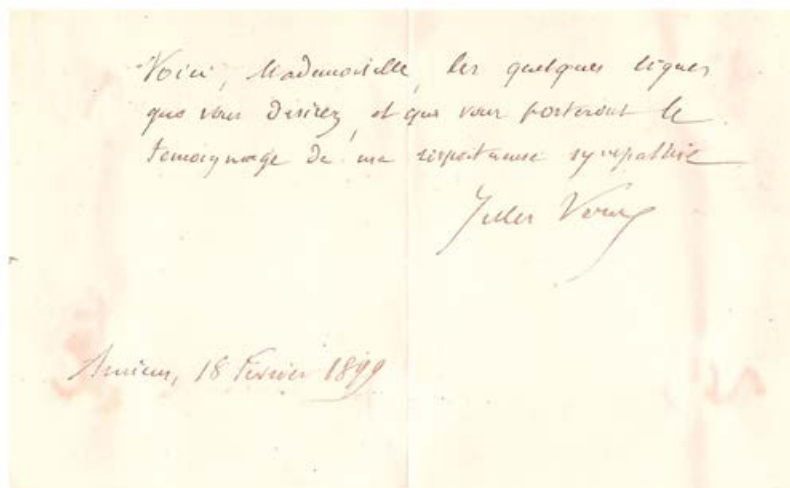 Voici, Mademoiselle, les quelques lignes
que vous desirez, et qui vous porteront le
temoignage de ma respectueuse sympathie
Jules Verne
Amiens, 18 Fevrier 1899